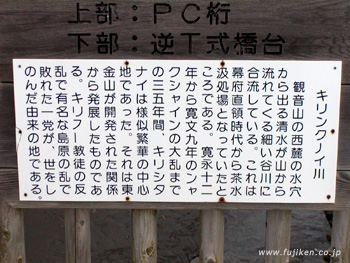 上部：PC桁
下部：逆T式橋台
キリンクノイ川
観音山の西麓の水穴
から出る清水が山から
流れてくる細い谷川に
合流している。これは
幕府直領時代から茶水
汲処場となっていたと
ころである。寛永十二
年から寛文九年のシャ
クシャインの大乱まで
の三五年間、キリシタ
ナイは様似繁華の中心
地であった。それは東
金山が開発された関係
から発展したものであ
る。キリフー教徒の反
乱で有名な島原の乱で
敗れた一党が、世をし
のんだ由来の地である。
www.fujiken.co.jp